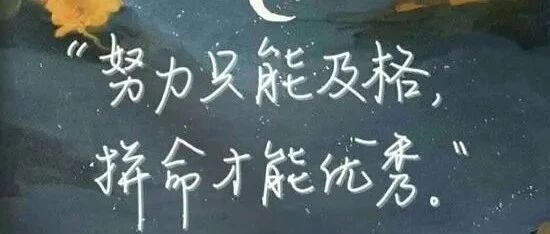 “努力只能及格，
拼命才能优秀。”